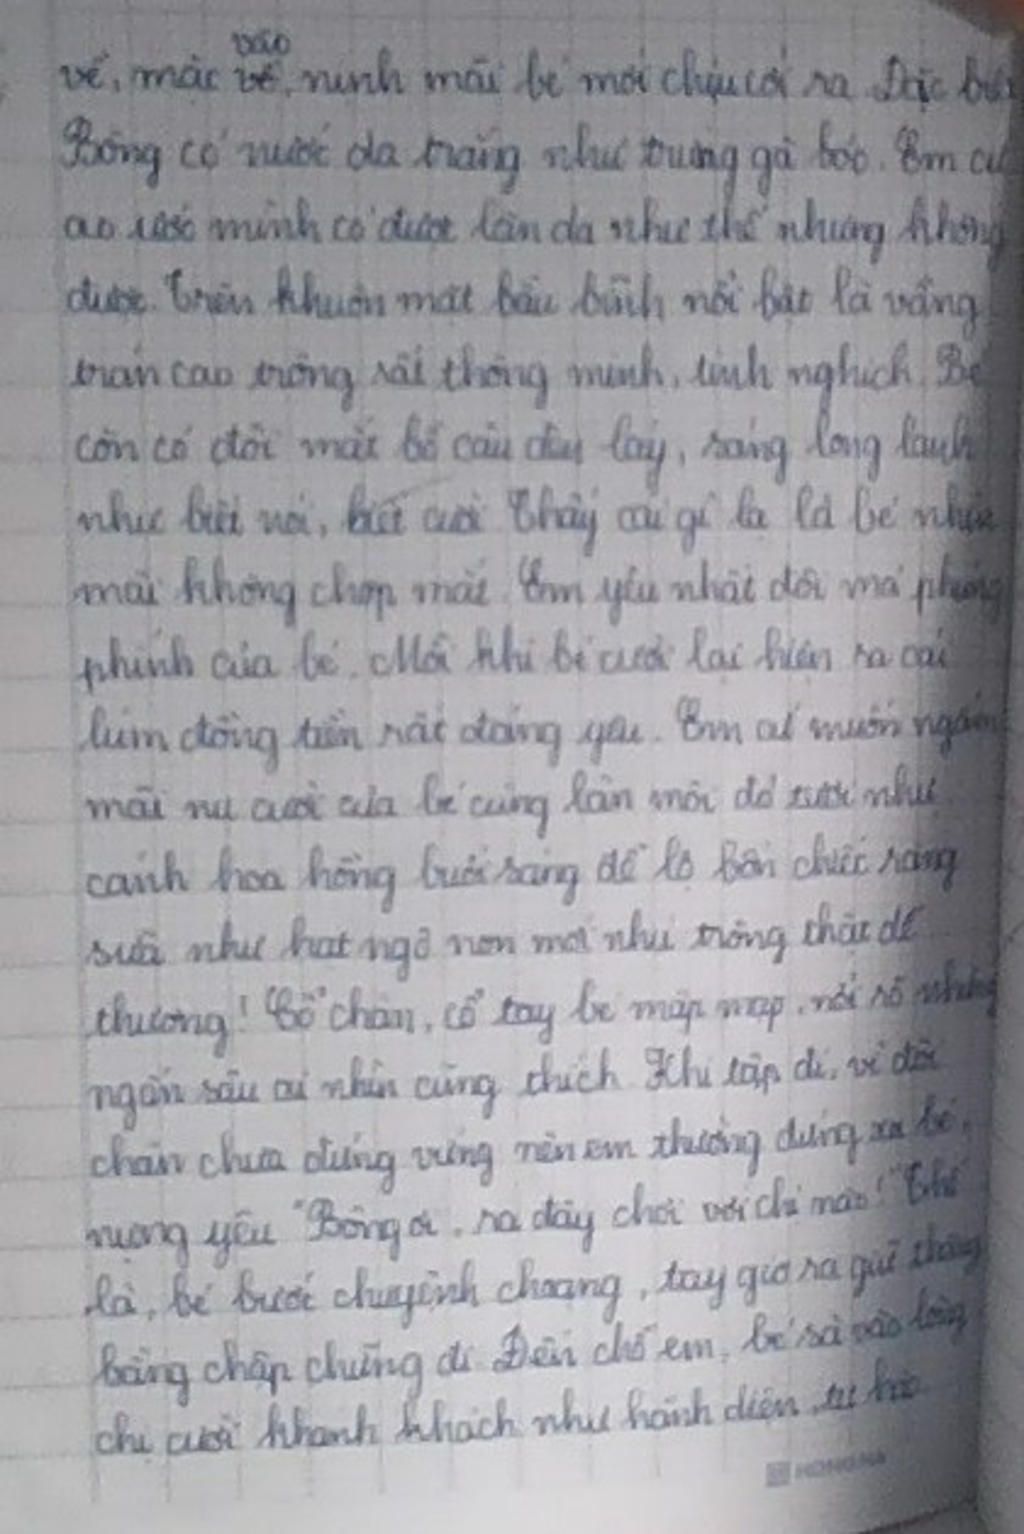 vào
về, mặc vẽ, nịnh mãi bé mới chịu cởi ra. Đặc
Bông có nước da trắng như trứng gà bóc. Em cứ
ao ước mình có được làn da như thế nhưng không
được. Trên khuôn mặt bầu bĩnh nổi bật là vầng
trán cao trông rất thông minh, tinh nghịch. Bé
còn có đôi mắt bồ câu đen láy, sáng long lanh
như biết nói, biết cười. Thấy cái gì lạ là bé nhìn
mãi không chớp mắt. Em yêu nhất đôi má phúng
phính của bé. Mỗi khi bé cười lại hiện ra cái
lúm đồng tiền rất đáng yêu. Em cứ muốn ngắm
mãi nụ cười của bé cùng làn môi đỏ tươi như
cánh hoa hồng buổi sáng để lộ bốn chiếc răng
sữa như hạt ngô non mới nhú trông thật dễ
thương! Cổ chân, cổ tay bé mập mạp, nổi rõ những
ngấn sâu ai nhìn cũng thích. Khi tập đi, vì đôi
chân chưa đứng vững nên em thường đứng xa bé,
nựng yêu "Bông ơi, ra đây chơi với chị nào!" Thế
là, bé bước chuyệnh choạng, tay giơ ra giữ thăng
bằng chập chững đi. Đến chỗ em, bé sà vào lòng
chị cười khanh khách như hãnh diện, tự hào
HONG HA